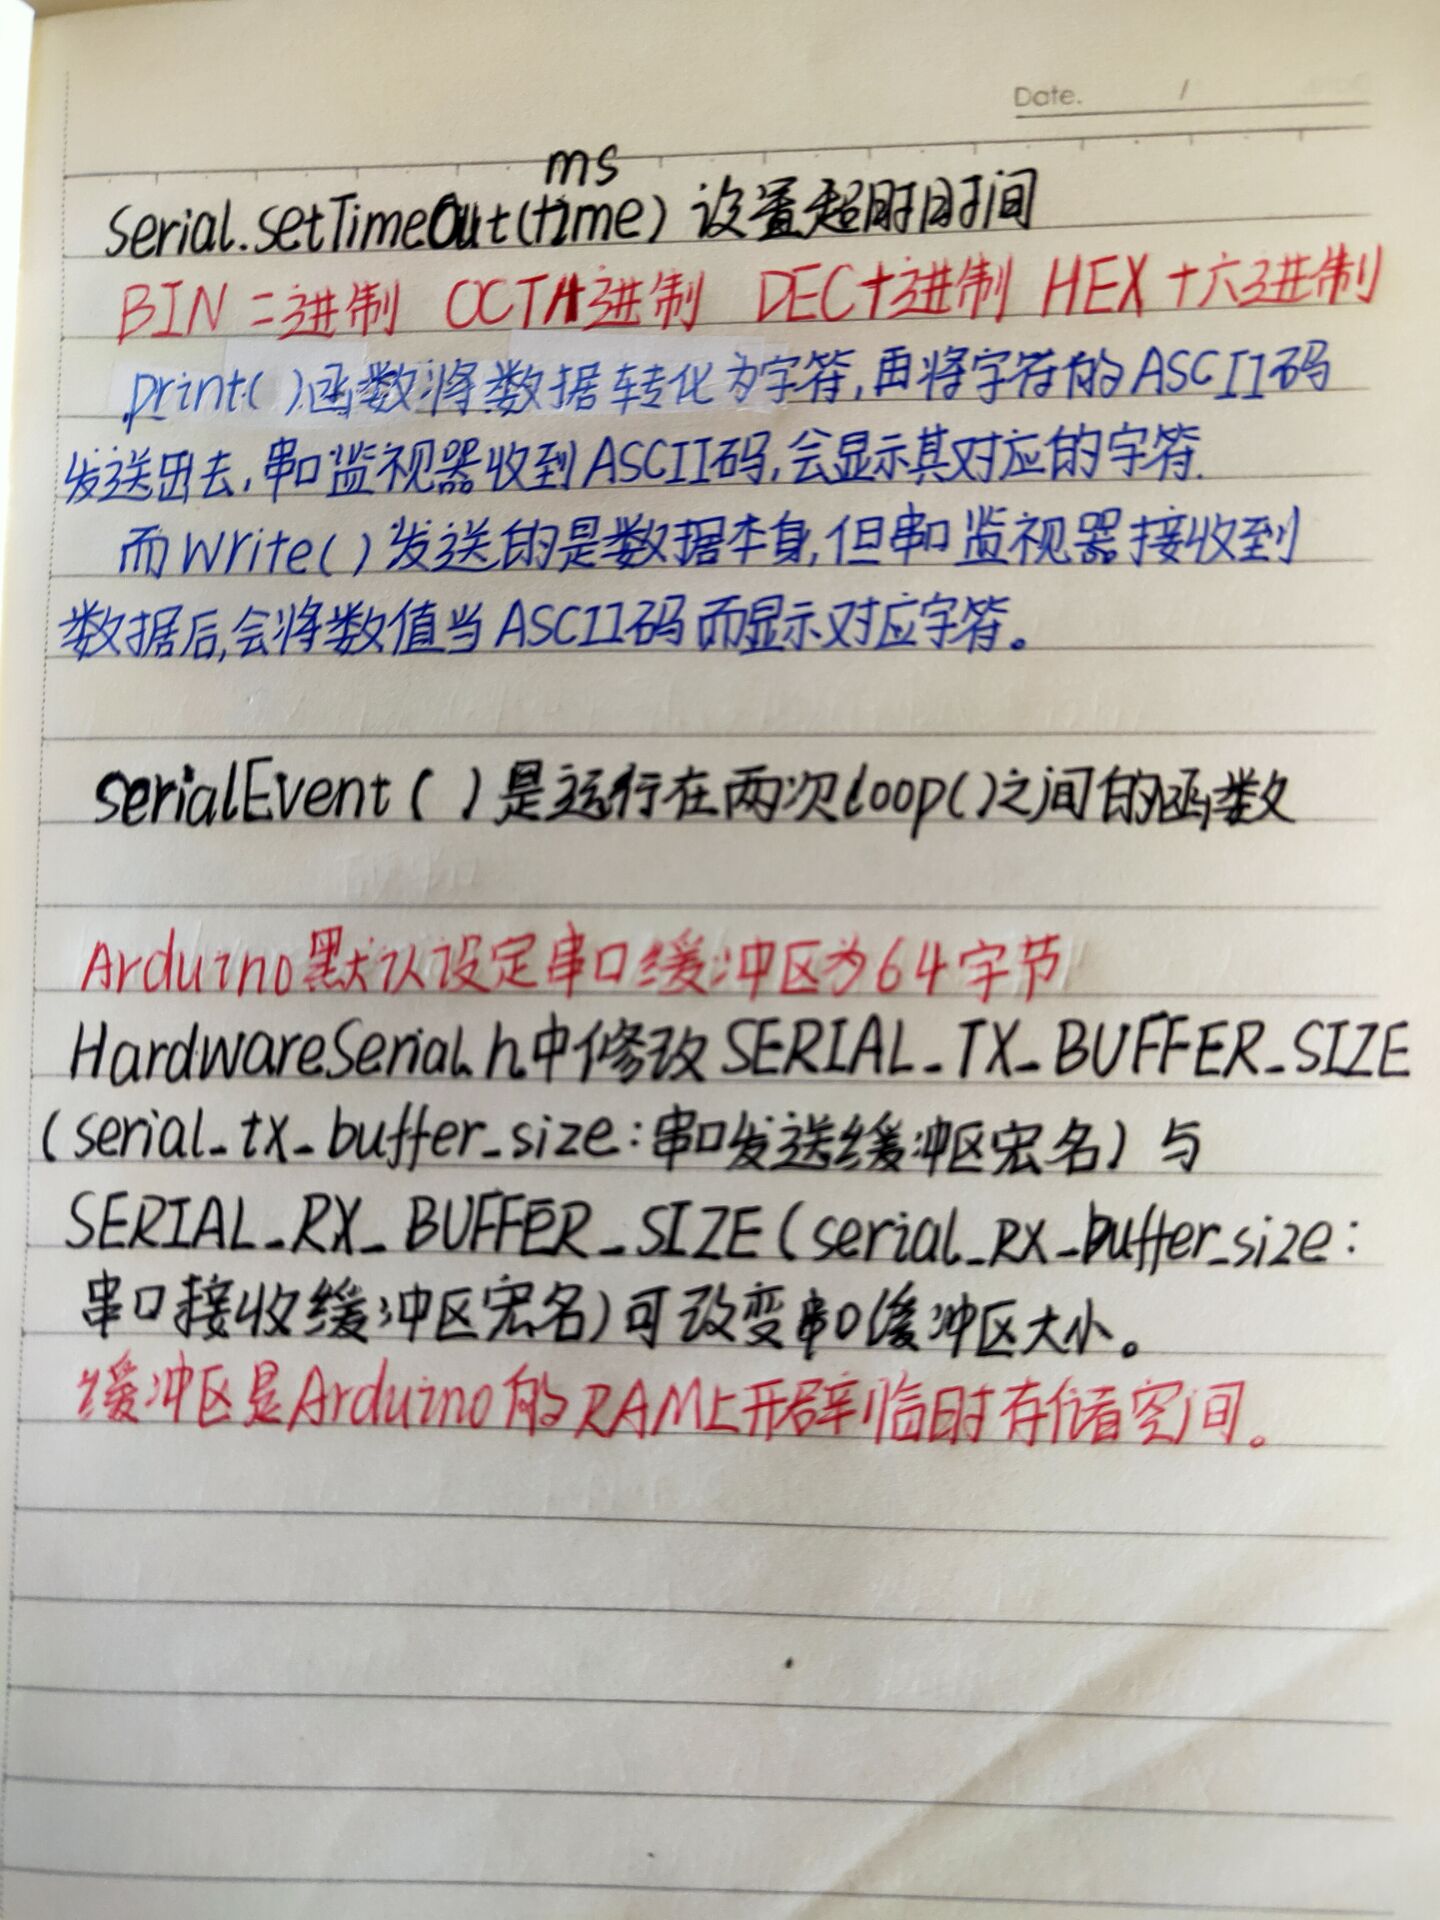 Date. /
ms
Serial.setTimeOut(time) 设置超时时间
BIN 二进制 OCT八进制 DEC十进制 HEX 十六进制
print( )函数将数据转化为字符,再将字符的ASCII码
发送出去,串口监视器收到ASCII码,会显示其对应的字符.
而write( )发送的是数据本身,但串口监视器接收到
数据后,会将数值当ASCII码而显示对应字符。
serialEvent ( )是运行在两次loop()之间的函数
Arduino默认设定串口缓冲区为64字节
HardwareSerial.h中修改SERIAL_TX_BUFFER_SIZE
(serial_tx_buffer_size:串口发送缓冲区宏名)与
SERIAL_RX_BUFFER_SIZE(serial_RX_buffer_size:
串口接收缓冲区宏名)可改变串口缓冲区大小。
缓冲区是Arduino的RAM上开辟临时存储空间。